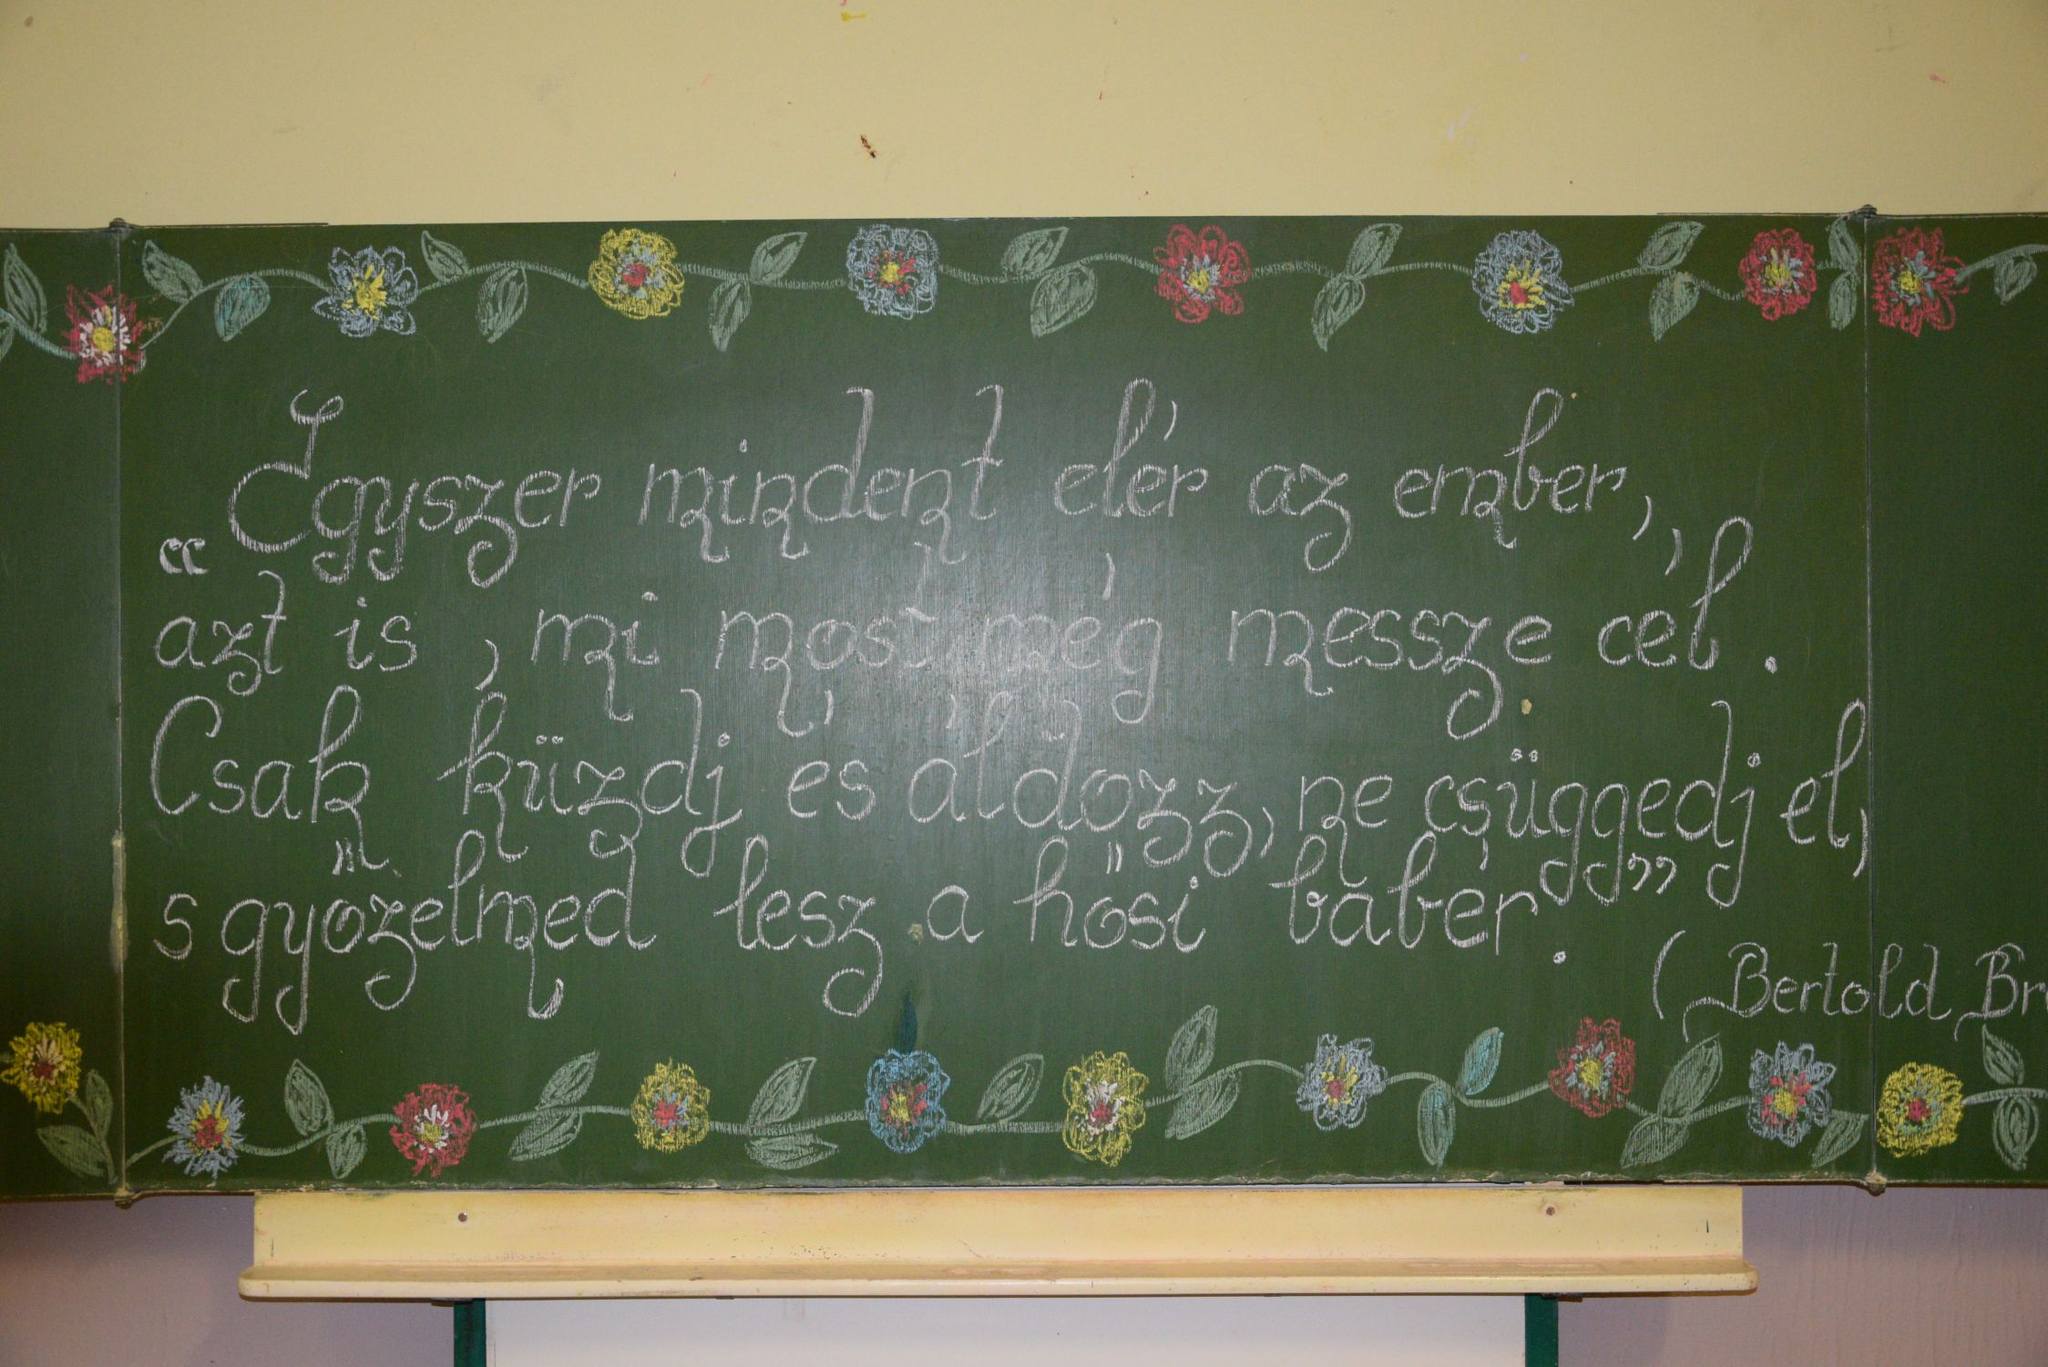 „Egyszer mindent elér az ember,
azt is, mi most még messze cél.
Csak küzdj és áldozz, ne csüggedj el,
s győzelmed lesz a hősi babér.”
(Bertold Br